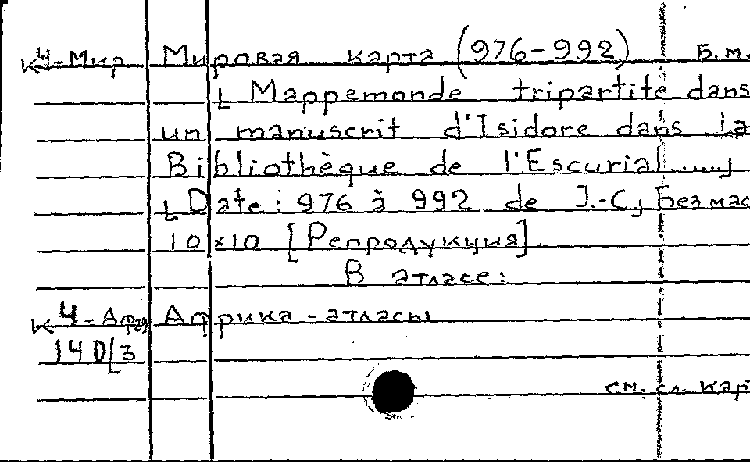 К4-Мир Мировая карта (976-992) Б.м.
[Mappemonde tripartite dans
un manuscrit d'Isidore dans la
Bibliothèque de l'Escurial.....]
[Date: 976 à 992 de J.-C.] Без мас
10×10 [Репродукция]
В атласе:
К4-Афр Африка-атласы
140/3
см. сл. кар